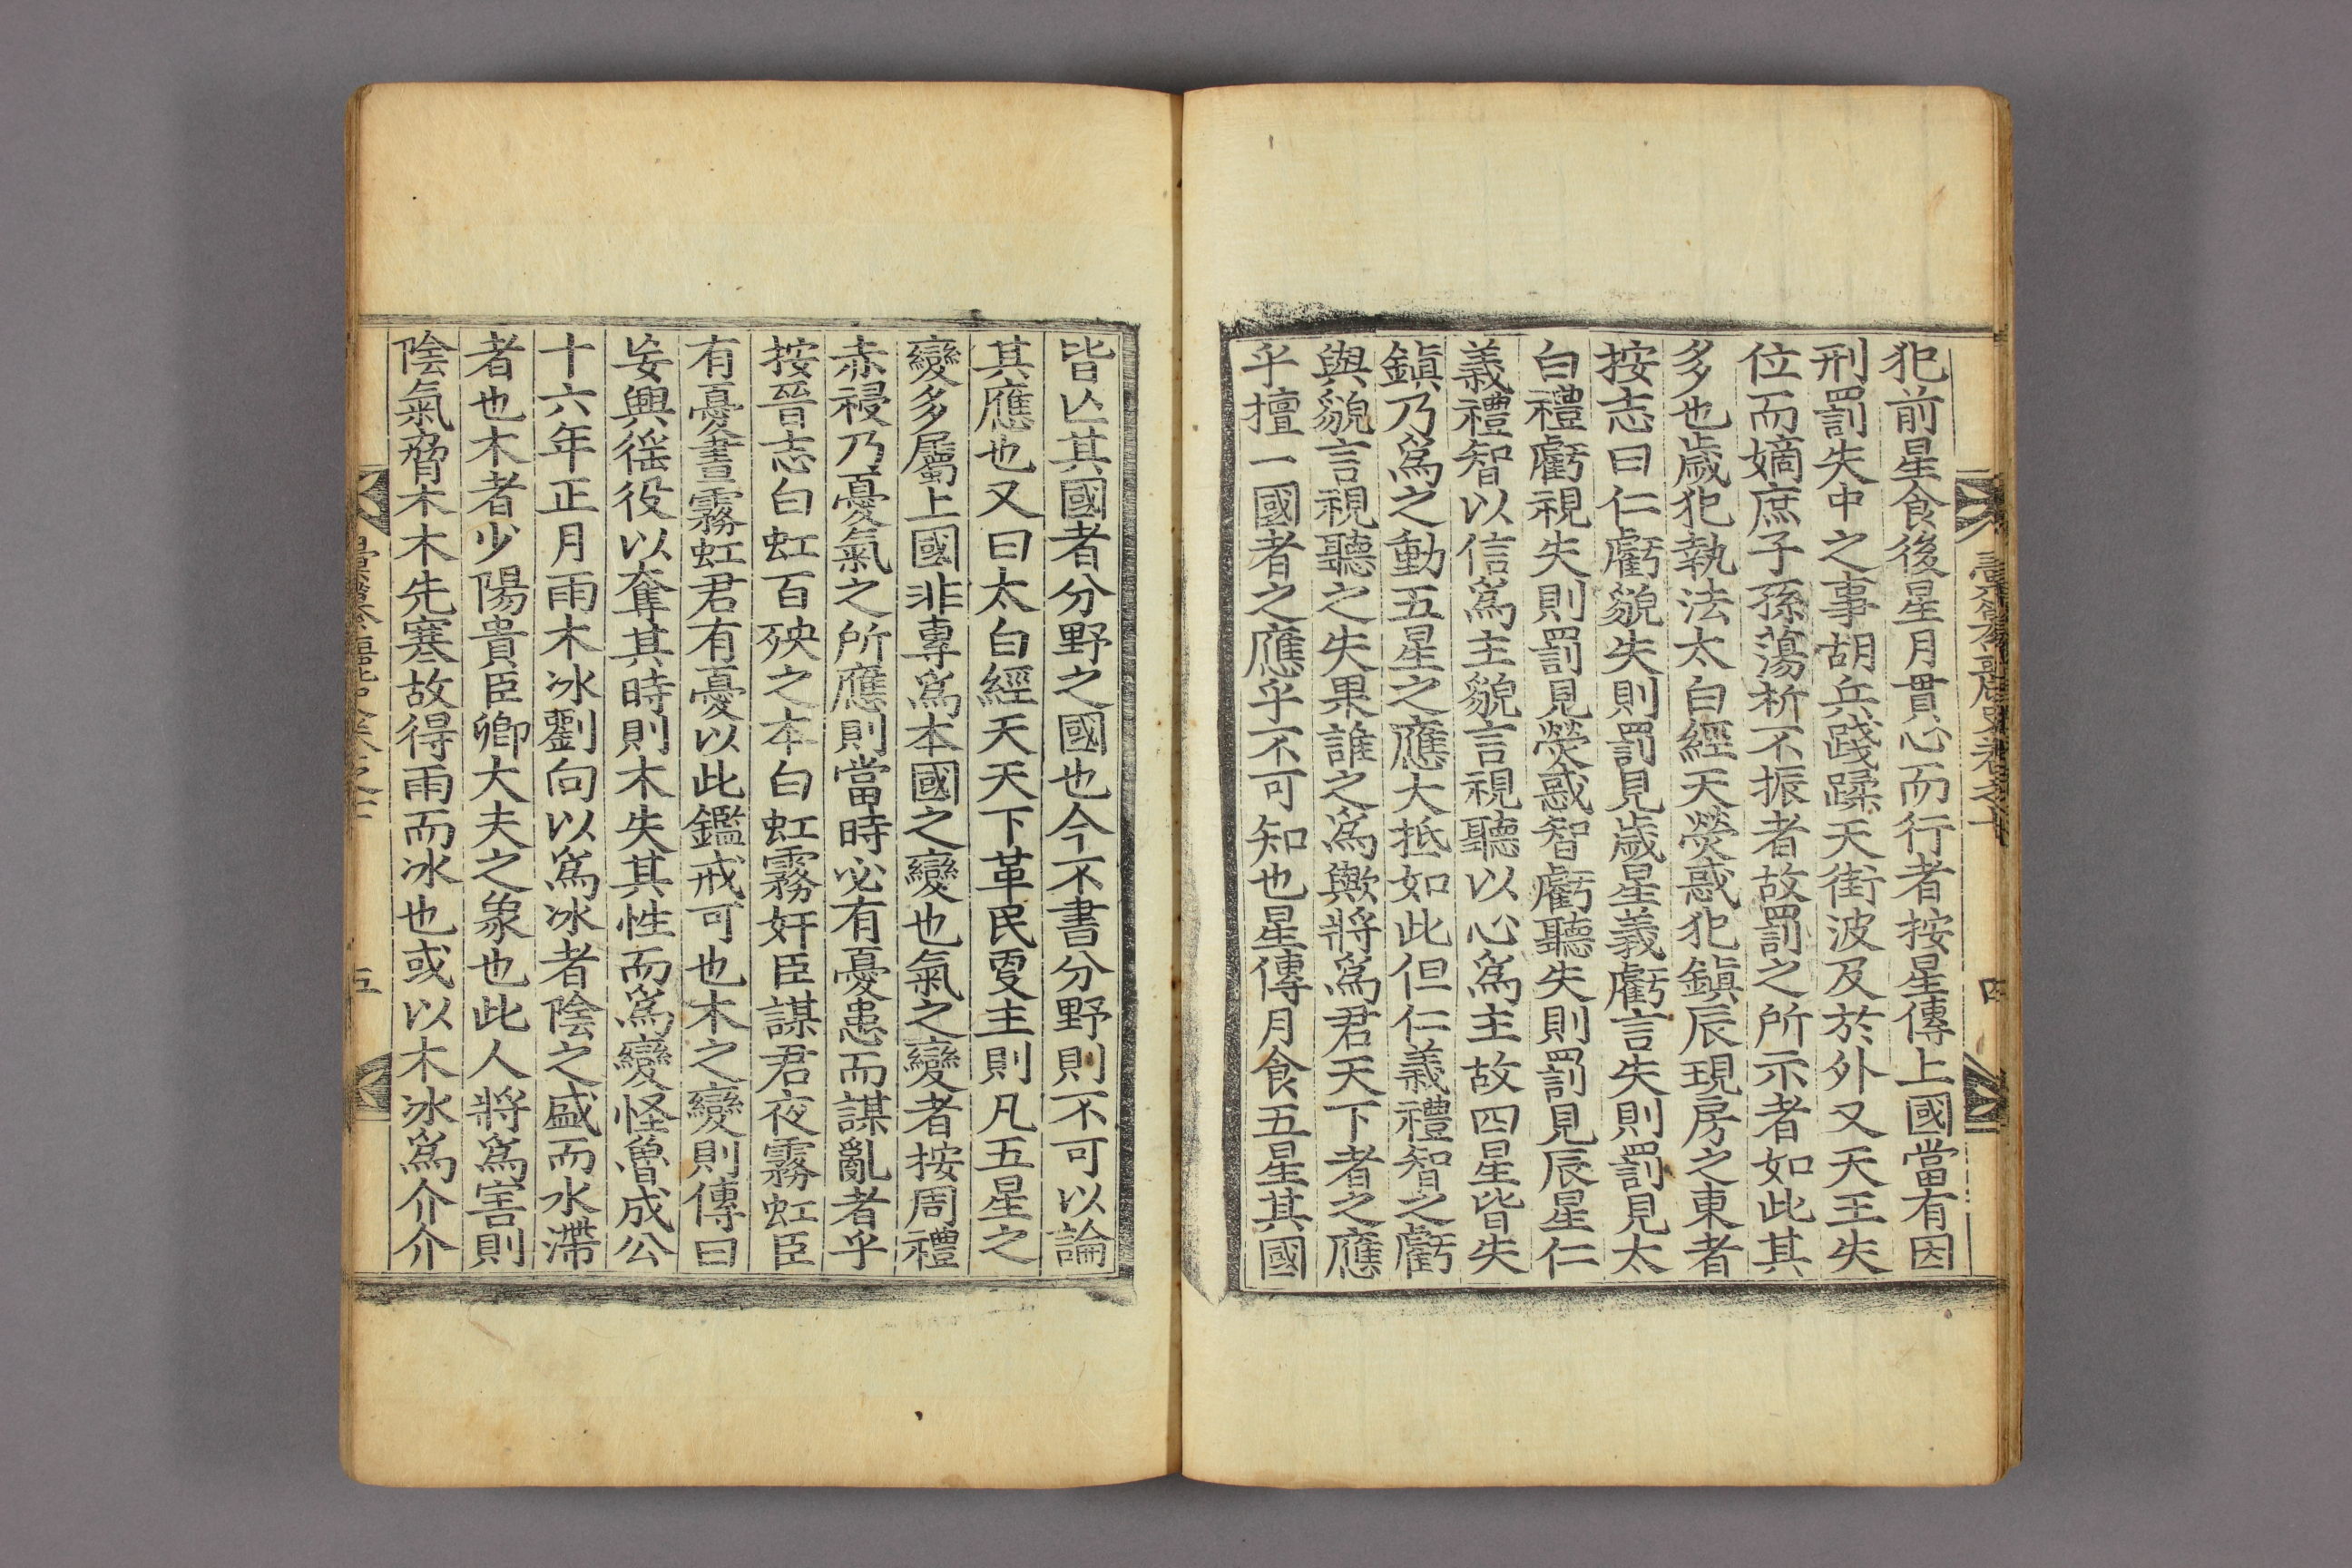 犯前星食後星月貫心而行者按星傳上國當有因
刑罰失中之事胡兵踐蹂天街波及於外又天王失
位而嫡庶子孫蕩析不振者故罰之所示者如此其
多也歲犯執法太白經天熒惑犯鎮辰現房之東者
按志曰仁虧貌失則罰見歲星義虧言失則罰見太
白禮虧視失則罰見熒惑智虧聽失則罰見辰星仁
義禮智以信爲主貌言視聽以心爲主故四星皆失
鎮乃爲之動五星之應大抵如此但仁義禮智之虧
與貌言視聽之失果誰之爲歟將爲君天下者之應
乎擅一國者之應乎不可知也星傳月食五星其國
皆亡其國者分野之國也今不書分野則不可以論
其應也又曰太白經天天下革民更主則凡五星之
變多屬上國非專爲本國之變也氣之變者按周禮
赤祲乃憂氣之所應則當時必有憂患而謀亂者乎
按晉志白虹百殃之本白虹霧奸臣謀君夜霧虹臣
有憂晝霧虹君有憂以此鑑戒可也木之變則傳曰
妄興徭役以奪其時則木失其性而爲變怪魯成公
十六年正月雨木冰劉向以爲冰者陰之盛而水滯
者也木者少陽貴臣卿大夫之象也此人將爲害則
陰氣脅木木先寒故得雨而冰也或以木冰爲介介
四
五